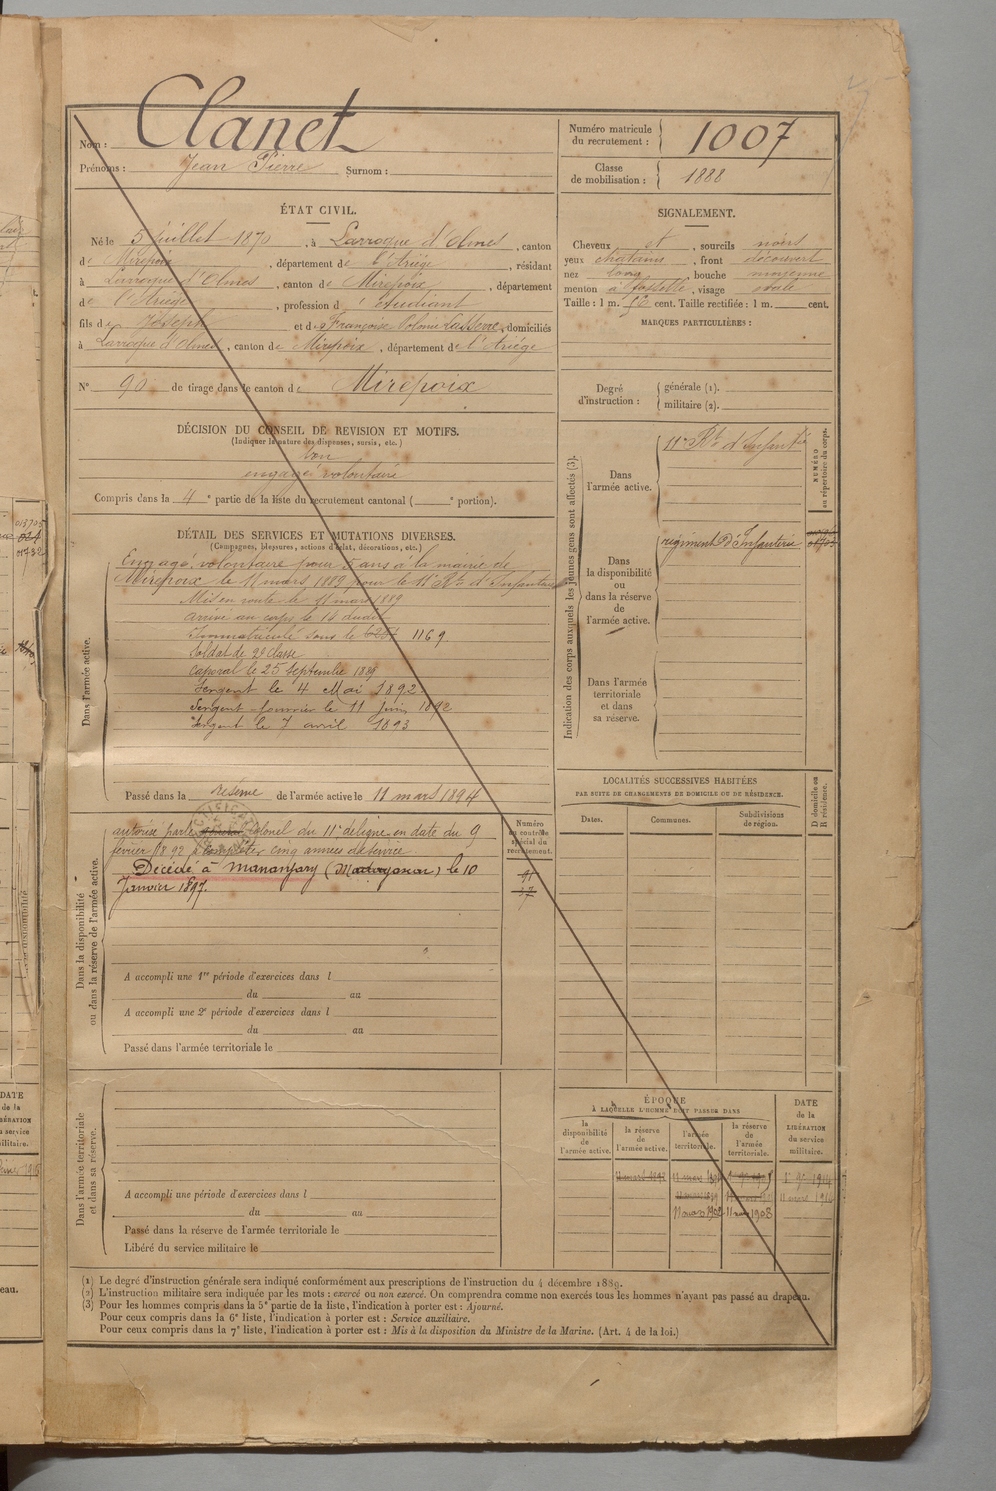 Clanet
Nom :
Prénoms : Jean Pierre Surnom :
Numéro matricule
du recrutement : 1007
Classe
de mobilisation : 1888
ÉTAT CIVIL.
Né le 5 juillet 1870, à Larroque d'Olmes, canton
de Mirepoix, département de l'Ariège, résidant
à Larroque d'Olmes, canton de Mirepoix, département
de l'Ariège, profession d'étudiant
fils de Joseph et de Françoise Lasserre, domiciliés
à Larroque d'Olmes, canton de Mirepoix, département de l'Ariège
N° 90 de tirage dans le canton de Mirepoix
DÉCISION DU CONSEIL DE REVISION ET MOTIFS.
(Indiquer la nature des dispenses, sursis, etc.)
bon
engagé volontaire
Compris dans la 4e partie de la liste du recrutement cantonal ( e portion).
DÉTAIL DES SERVICES ET MUTATIONS DIVERSES.
(Campagnes, blessures, actions d'éclat, décorations, etc.)
Dans l'armée active.
Engagé volontaire pour 5 ans à la mairie de
Mirepoix le 11 mars 1889 pour le 11e Rt d'Infanterie
Mis en route le 11 mars 1889
arrivé au corps le 14 dudit
Immatriculé sous le 1169
Soldat de 2e classe
caporal le 25 septembre 1889
Sergent le 4 Mai 1892
Sergent-fourrier le 11 Juin 1892
Sergent le 7 avril 1893
Passé dans la réserve de l'armée active le 11 mars 1894
Dans la disponibilité
ou dans la réserve de l'armée active.
autorisé par le colonel du 11e de ligne en date du 9
février 1892 à compléter cinq années de service
Décédé à Mananjary (Madagascar) le 10
Janvier 1897.
Numéro
au contrôle
spécial du
recrutement.
91
37
A accompli une 1re période d'exercices dans l
du au
A accompli une 2e période d'exercices dans l
du au
Passé dans l'armée territoriale le
Dans l'armée territoriale
et dans sa réserve.
A accompli une période d'exercices dans l
du au
Passé dans la réserve de l'armée territoriale le
Libéré du service militaire le
SIGNALEMENT.
Cheveux et, sourcils noirs
yeux chatains, front découvert
nez long, bouche moyenne
menton à fossette, visage ovale
Taille : 1 m. cent. Taille rectifiée : 1 m. cent.
MARQUES PARTICULIÈRES :
Degré
d'instruction :
générale (1).
militaire (2).
Indication des corps auxquels les jeunes gens sont affectés (3).
NUMÉRO
au répertoire du corps.
Dans
l'armée active.
11e Rt d'Infanterie
Dans
la disponibilité
ou
dans la réserve
de
l'armée active.
régiment d'Infanterie
Dans l'armée
territoriale
et dans
sa réserve.
LOCALITÉS SUCCESSIVES HABITÉES
PAR SUITE DE CHANGEMENTS DE DOMICILE OU DE RÉSIDENCE.
Dates.
Communes.
Subdivisions
de région.
D domicile ou
R résidence.
ÉPOQUE
À LAQUELLE L'HOMME DOIT PASSER DANS
la
disponibilité
de
l'armée active.
la réserve
de
l'armée active.
l'armée
territoriale.
la réserve
de
l'armée
territoriale.
DATE
de la
LIBÉRATION
du service
militaire.
11 mars 1902 11 mars 1908
(1) Le degré d'instruction générale sera indiqué conformément aux prescriptions de l'instruction du 4 décembre 1889.
(2) L'instruction militaire sera indiquée par les mots : exercé ou non exercé. On comprendra comme non exercés tous les hommes n'ayant pas passé au drapeau.
(3) Pour les hommes compris dans la 5e partie de la liste, l'indication à porter est : Ajourné.
Pour ceux compris dans la 6e liste, l'indication à porter est : Service auxiliaire.
Pour ceux compris dans la 7e liste, l'indication à porter est : Mis à la disposition du Ministre de la Marine. (Art. 4 de la loi.)